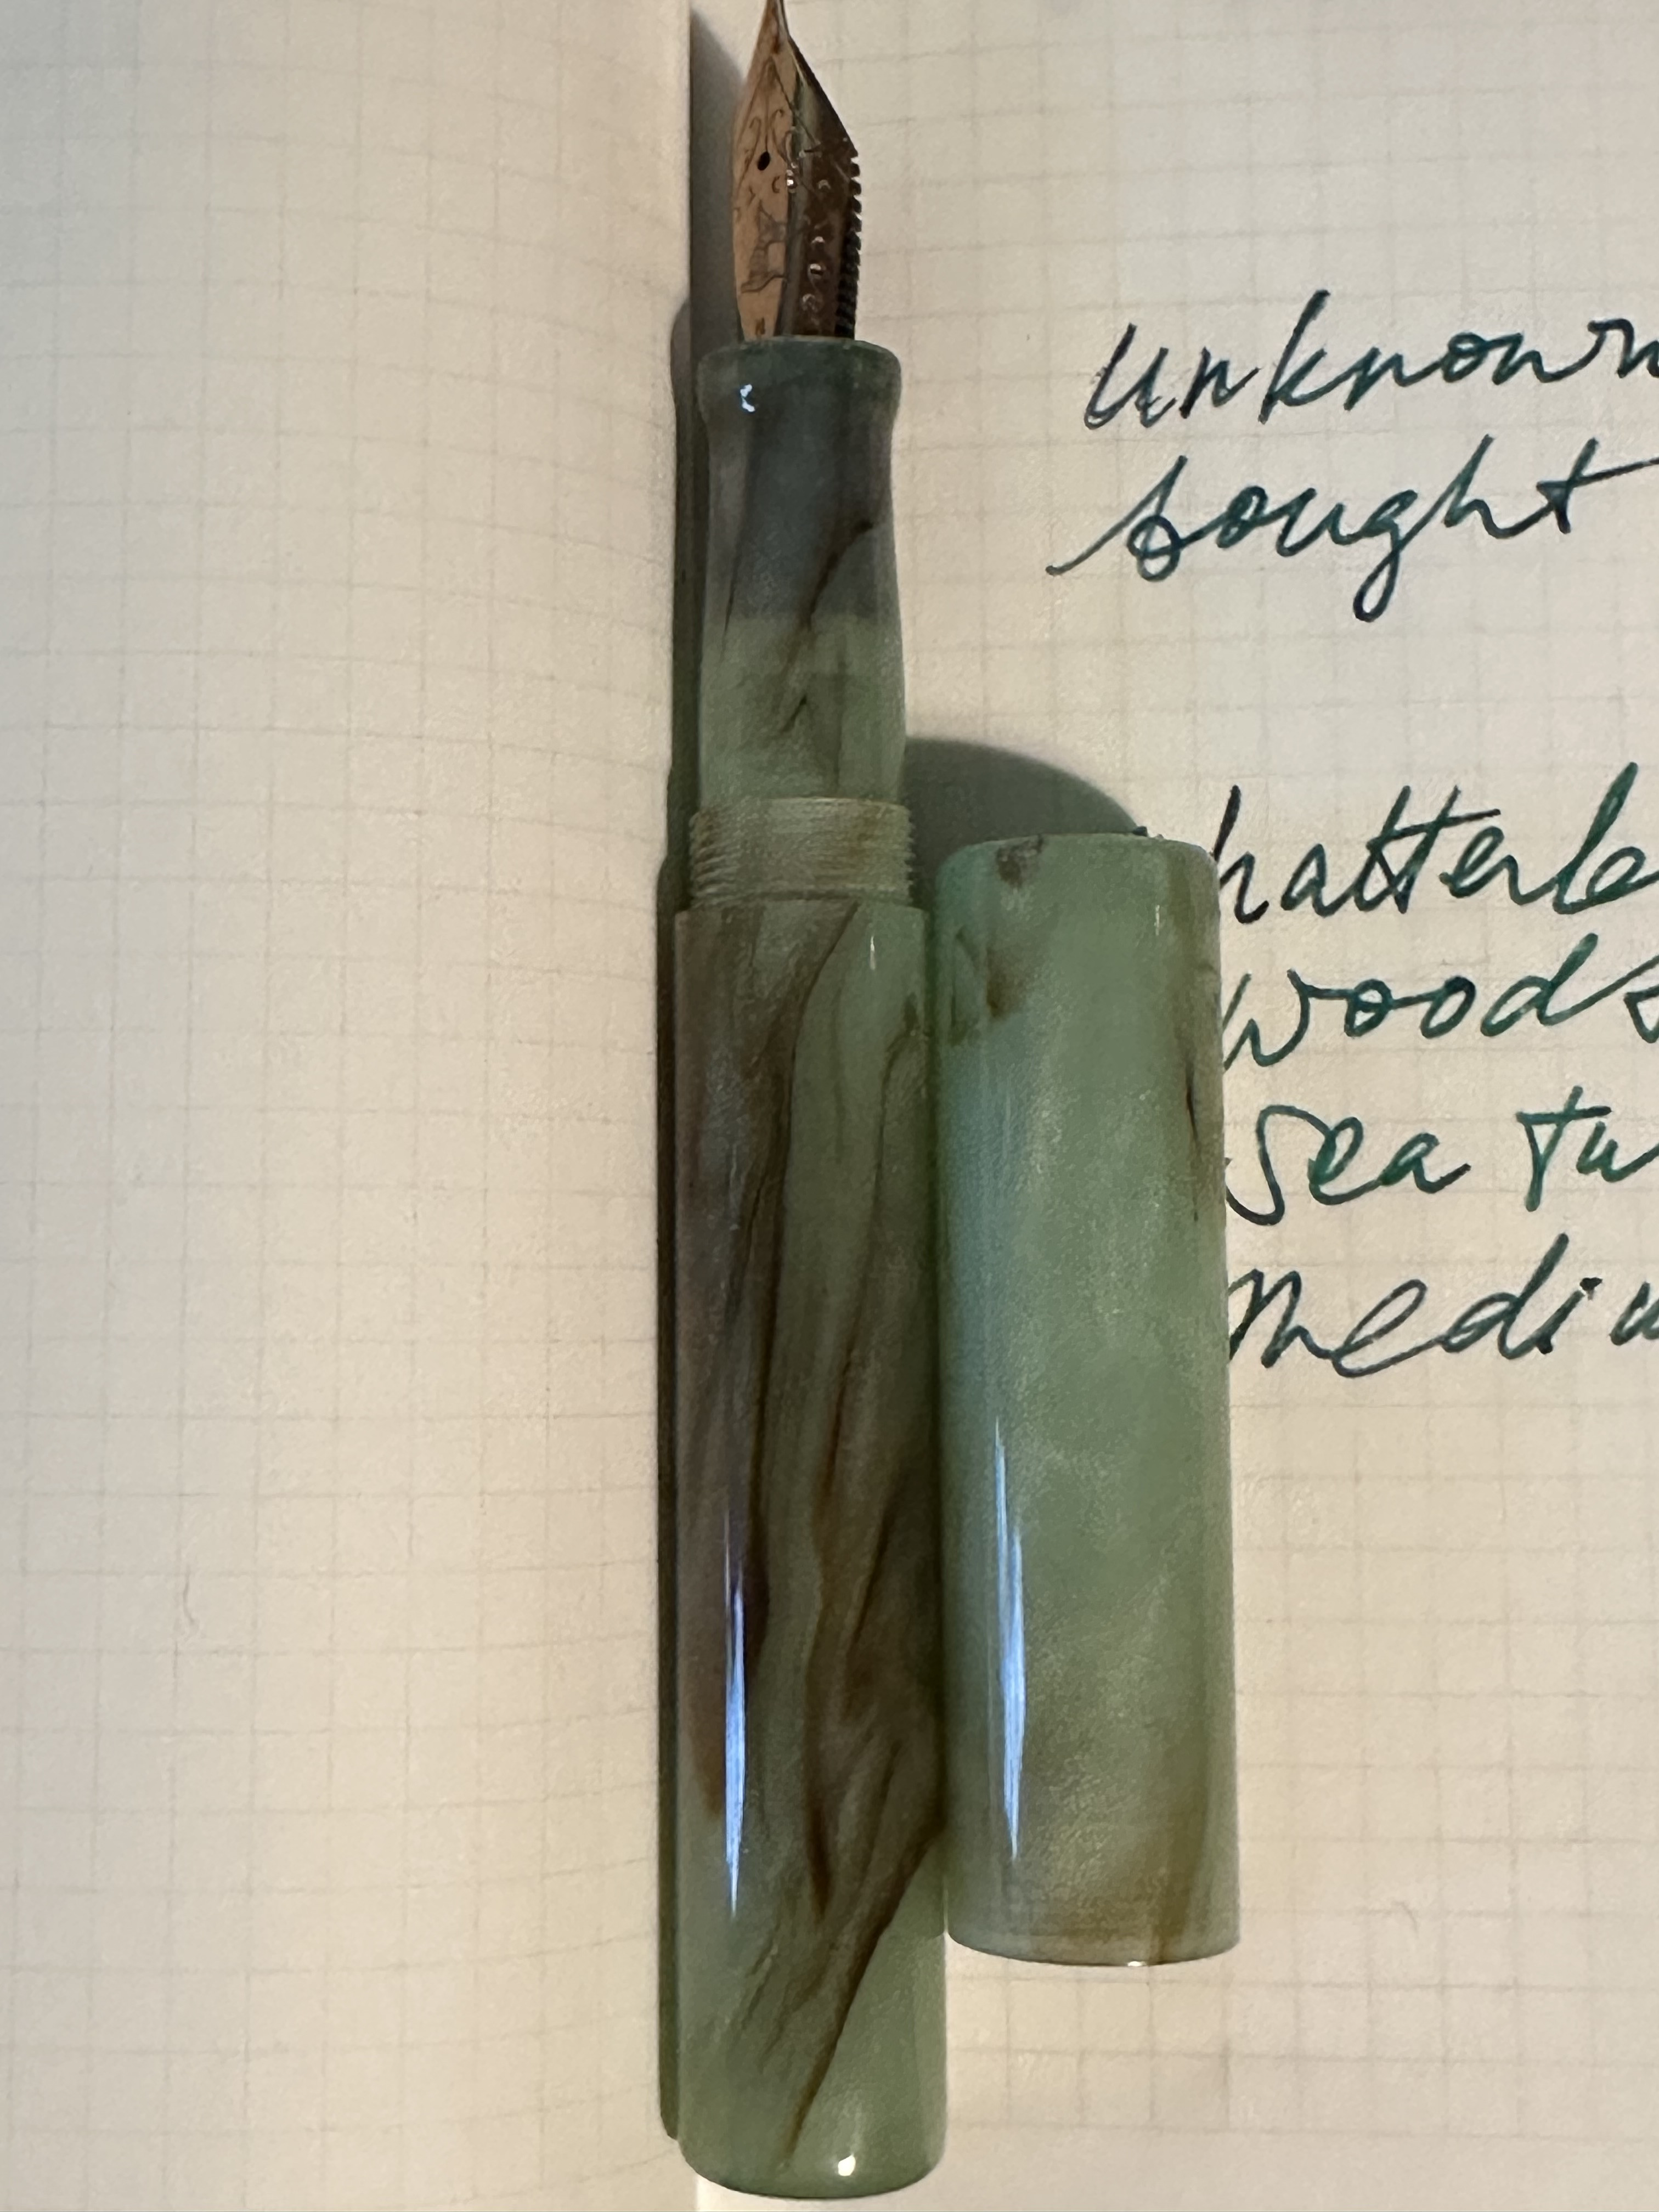 unknown
sought
hatterle
woods
sea tu
mediu